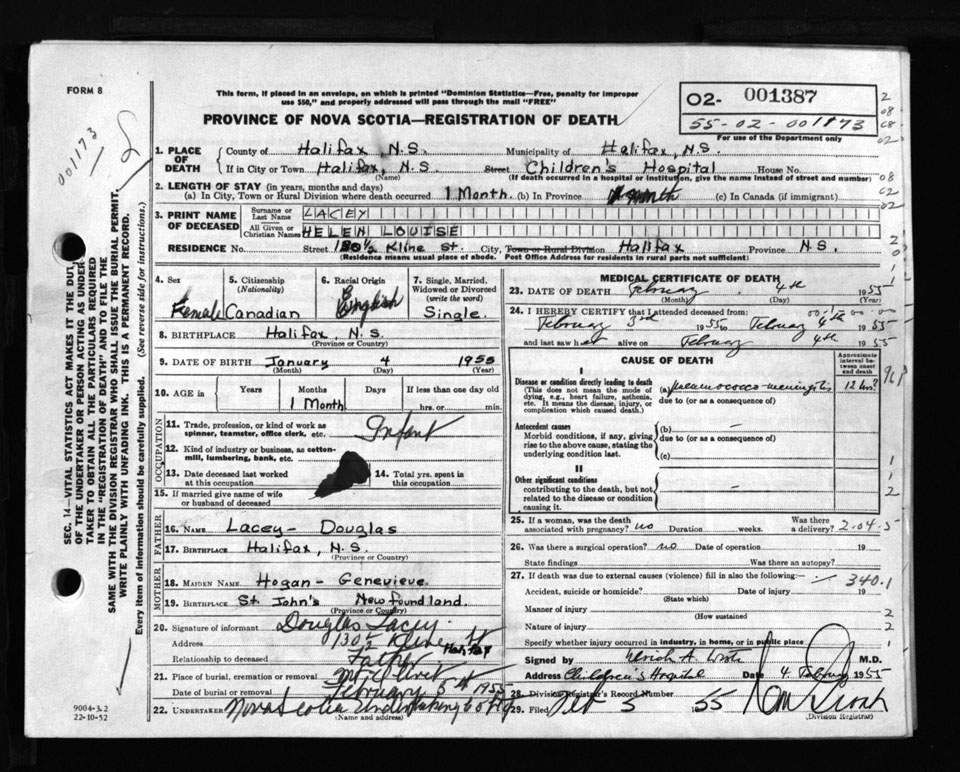 FORM 8
This form, if placed in an envelope, on which is printed "Dominion Statistics—Free, penalty for improper
use $50," and properly addressed will pass through the mail "FREE"
PROVINCE OF NOVA SCOTIA—REGISTRATION OF DEATH
02- 001387
55-02-001173
For use of the Department only
001173
SEC. 14—VITAL STATISTICS ACT MAKES IT THE DUTY
OF THE UNDERTAKER OR PERSON ACTING AS UNDER-
TAKER TO OBTAIN ALL THE PARTICULARS REQUIRED
IN THE "REGISTRATION OF DEATH" AND TO FILE THE
SAME WITH THE DIVISION REGISTRAR WHO SHALL ISSUE THE BURIAL PERMIT.
WRITE PLAINLY WITH UNFADING INK. THIS IS A PERMANENT RECORD.
Every item of information should be carefully supplied. (See reverse side for instructions.)
1. PLACE OF DEATH
County of Halifax, N.S. Municipality of Halifax, N.S.
If in City or Town Halifax, N.S. Street Children's Hospital House No.
(Name) (If death occurred in a hospital or institution, give the name instead of street and number)
2. LENGTH OF STAY (in years, months and days)
(a) In City, Town or Rural Division where death occurred 1 Month. (b) In Province 1 month (c) In Canada (if immigrant)
3. PRINT NAME OF DECEASED
Surname or Last Name LACEY
All Given or Christian Names HELEN LOUISE
RESIDENCE No. Street 130½ Kline St. City, Town or Rural Division Halifax Province N.S.
(Residence means usual place of abode. Post Office Address for residents in rural parts not sufficient)
4. Sex
Female
5. Citizenship (Nationality)
Canadian
6. Racial Origin
English
7. Single, Married, Widowed or Divorced (write the word)
Single.
8. BIRTHPLACE Halifax, N.S.
(Province or Country)
9. DATE OF BIRTH January 4 1955
(Month) (Day) (Year)
10. AGE in Years Months Days If less than one day old
1 Month hrs. or min.
OCCUPATION
11. Trade, profession, or kind of work as spinner, teamster, office clerk, etc. Infant
12. Kind of industry or business, as cotton-mill, lumbering, bank, etc.
13. Date deceased last worked at this occupation
14. Total yrs. spent in this occupation
15. If married give name of wife or husband of deceased
FATHER
16. NAME Lacey- Douglas
17. BIRTHPLACE Halifax, N.S.
(Province or Country)
MOTHER
18. MAIDEN NAME Hogan- Genevieve.
19. BIRTHPLACE St. John's Newfoundland.
(Province or Country)
20. Signature of informant Douglas Lacey.
Address 130½ Kline St Halifax
Relationship to deceased Father
21. Place of burial, cremation or removal Mt Olivet
Date of burial or removal February 5th 1955
22. UNDERTAKER Nova Scotia Undertaking Co
(Name and address)
9004-3.2
22-10-52
MEDICAL CERTIFICATE OF DEATH
23. DATE OF DEATH February 4th 1955
(Month) (Day) (Year)
24. I HEREBY CERTIFY that I attended deceased from:
February 3rd 1955 to February 4th 1955
and last saw her alive on February 4th 1955
CAUSE OF DEATH
Approximate interval between onset and death
I
Disease or condition directly leading to death
(This does not mean the mode of dying, e.g., heart failure, asthenia, etc. It means the disease, injury, or complication which caused death.)
(a) pneumococco-meningitis 12 hrs?
due to (or as a consequence of)
Antecedent causes
Morbid conditions, if any, giving rise to the above cause, stating the underlying condition last.
(b) —
due to (or as a consequence of)
(c)
II
Other significant conditions
contributing to the death, but not related to the disease or condition causing it.
—
25. If a woman, was the death associated with pregnancy? no Duration weeks. Was there a delivery? 2-04-5
26. Was there a surgical operation? no Date of operation 19
State findings Was there an autopsy?
27. If death was due to external causes (violence) fill in also the following:— 340.1
Accident, suicide or homicide? Date of injury 19
(State which)
Manner of injury
(How sustained
Nature of injury
Specify whether injury occurred in industry, in home, or in public place
Signed by M.D.
Address Children's Hospital Date 4 February 1955
28. Division Registrar's Record Number
29. Filed Feb 5 1955
(Division Registrar)